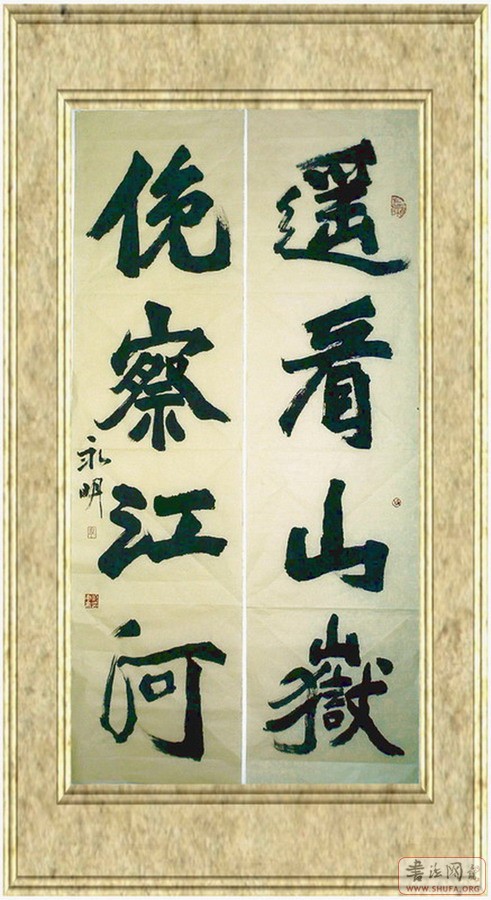 遥看山嶽
俛察江河
永明
書法网
WWW.SHUFA.ORG